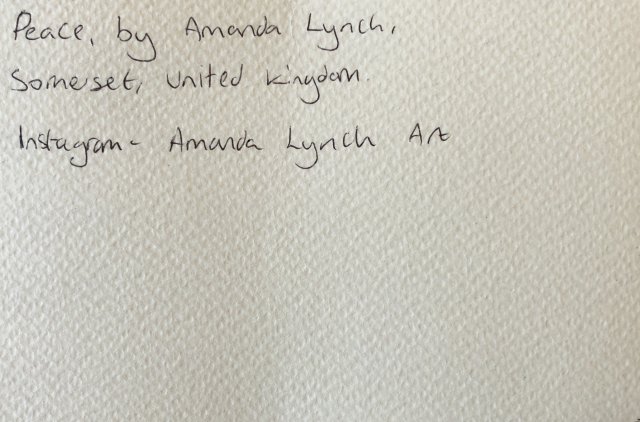 Peace, by Amanda Lynch,
Somerset, United Kingdom.
Instagram - Amanda Lynch Art